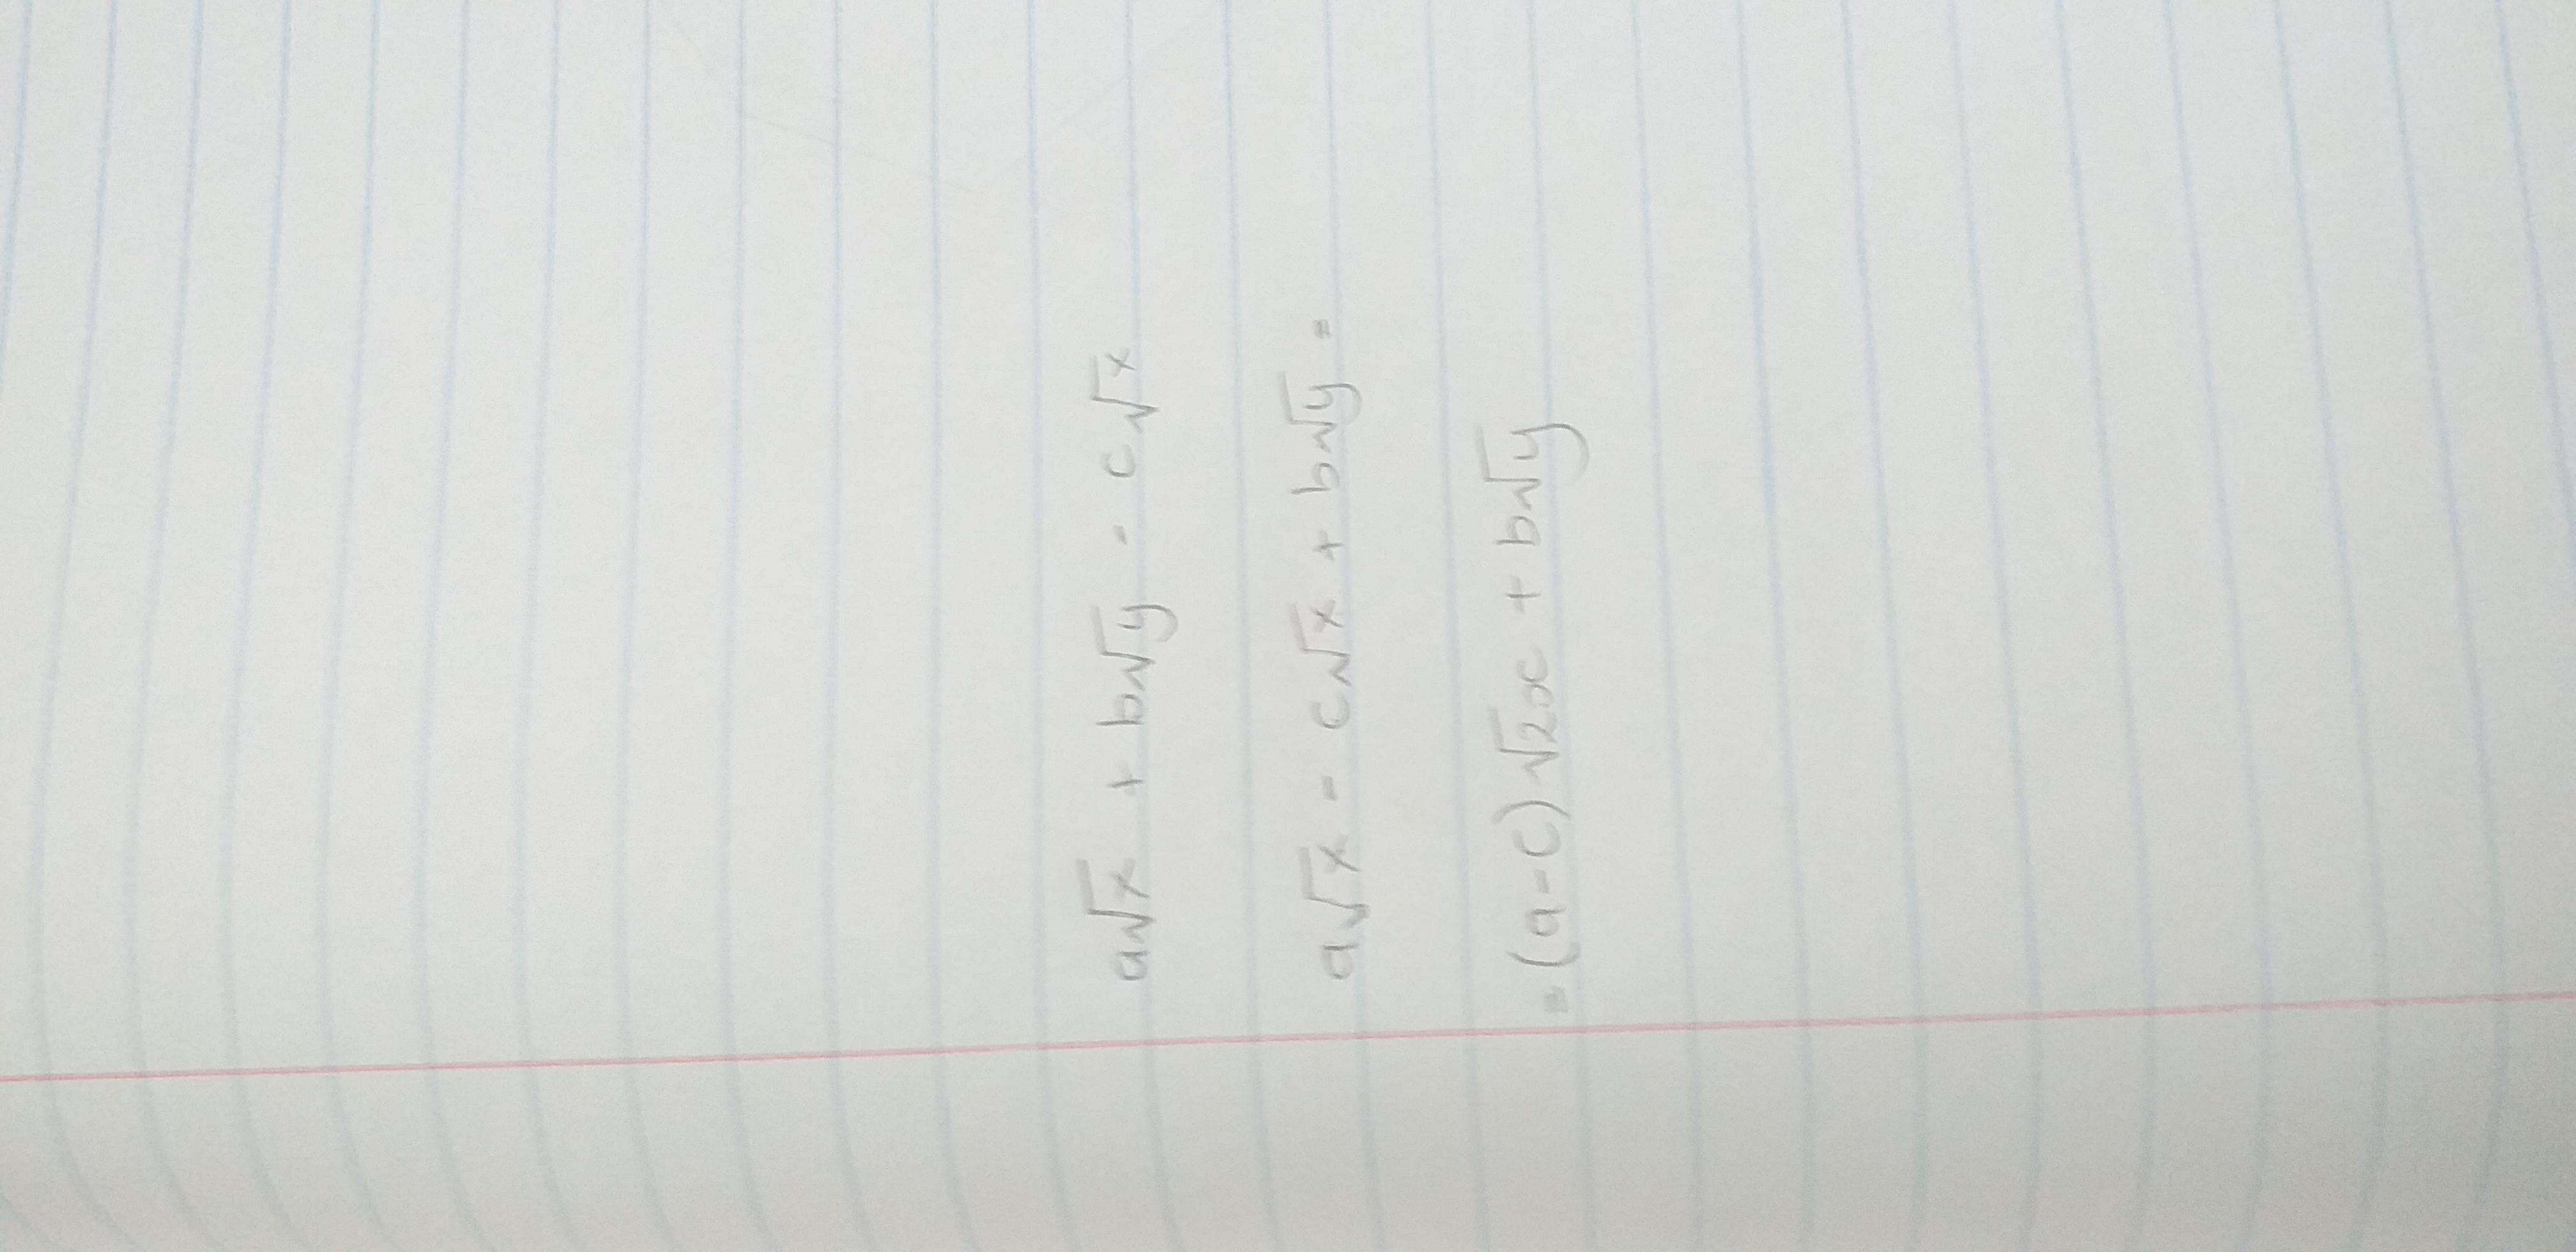 a√x + b√y - c√x
a√x - c√x + b√y =
= (a-c)√2x + b√y